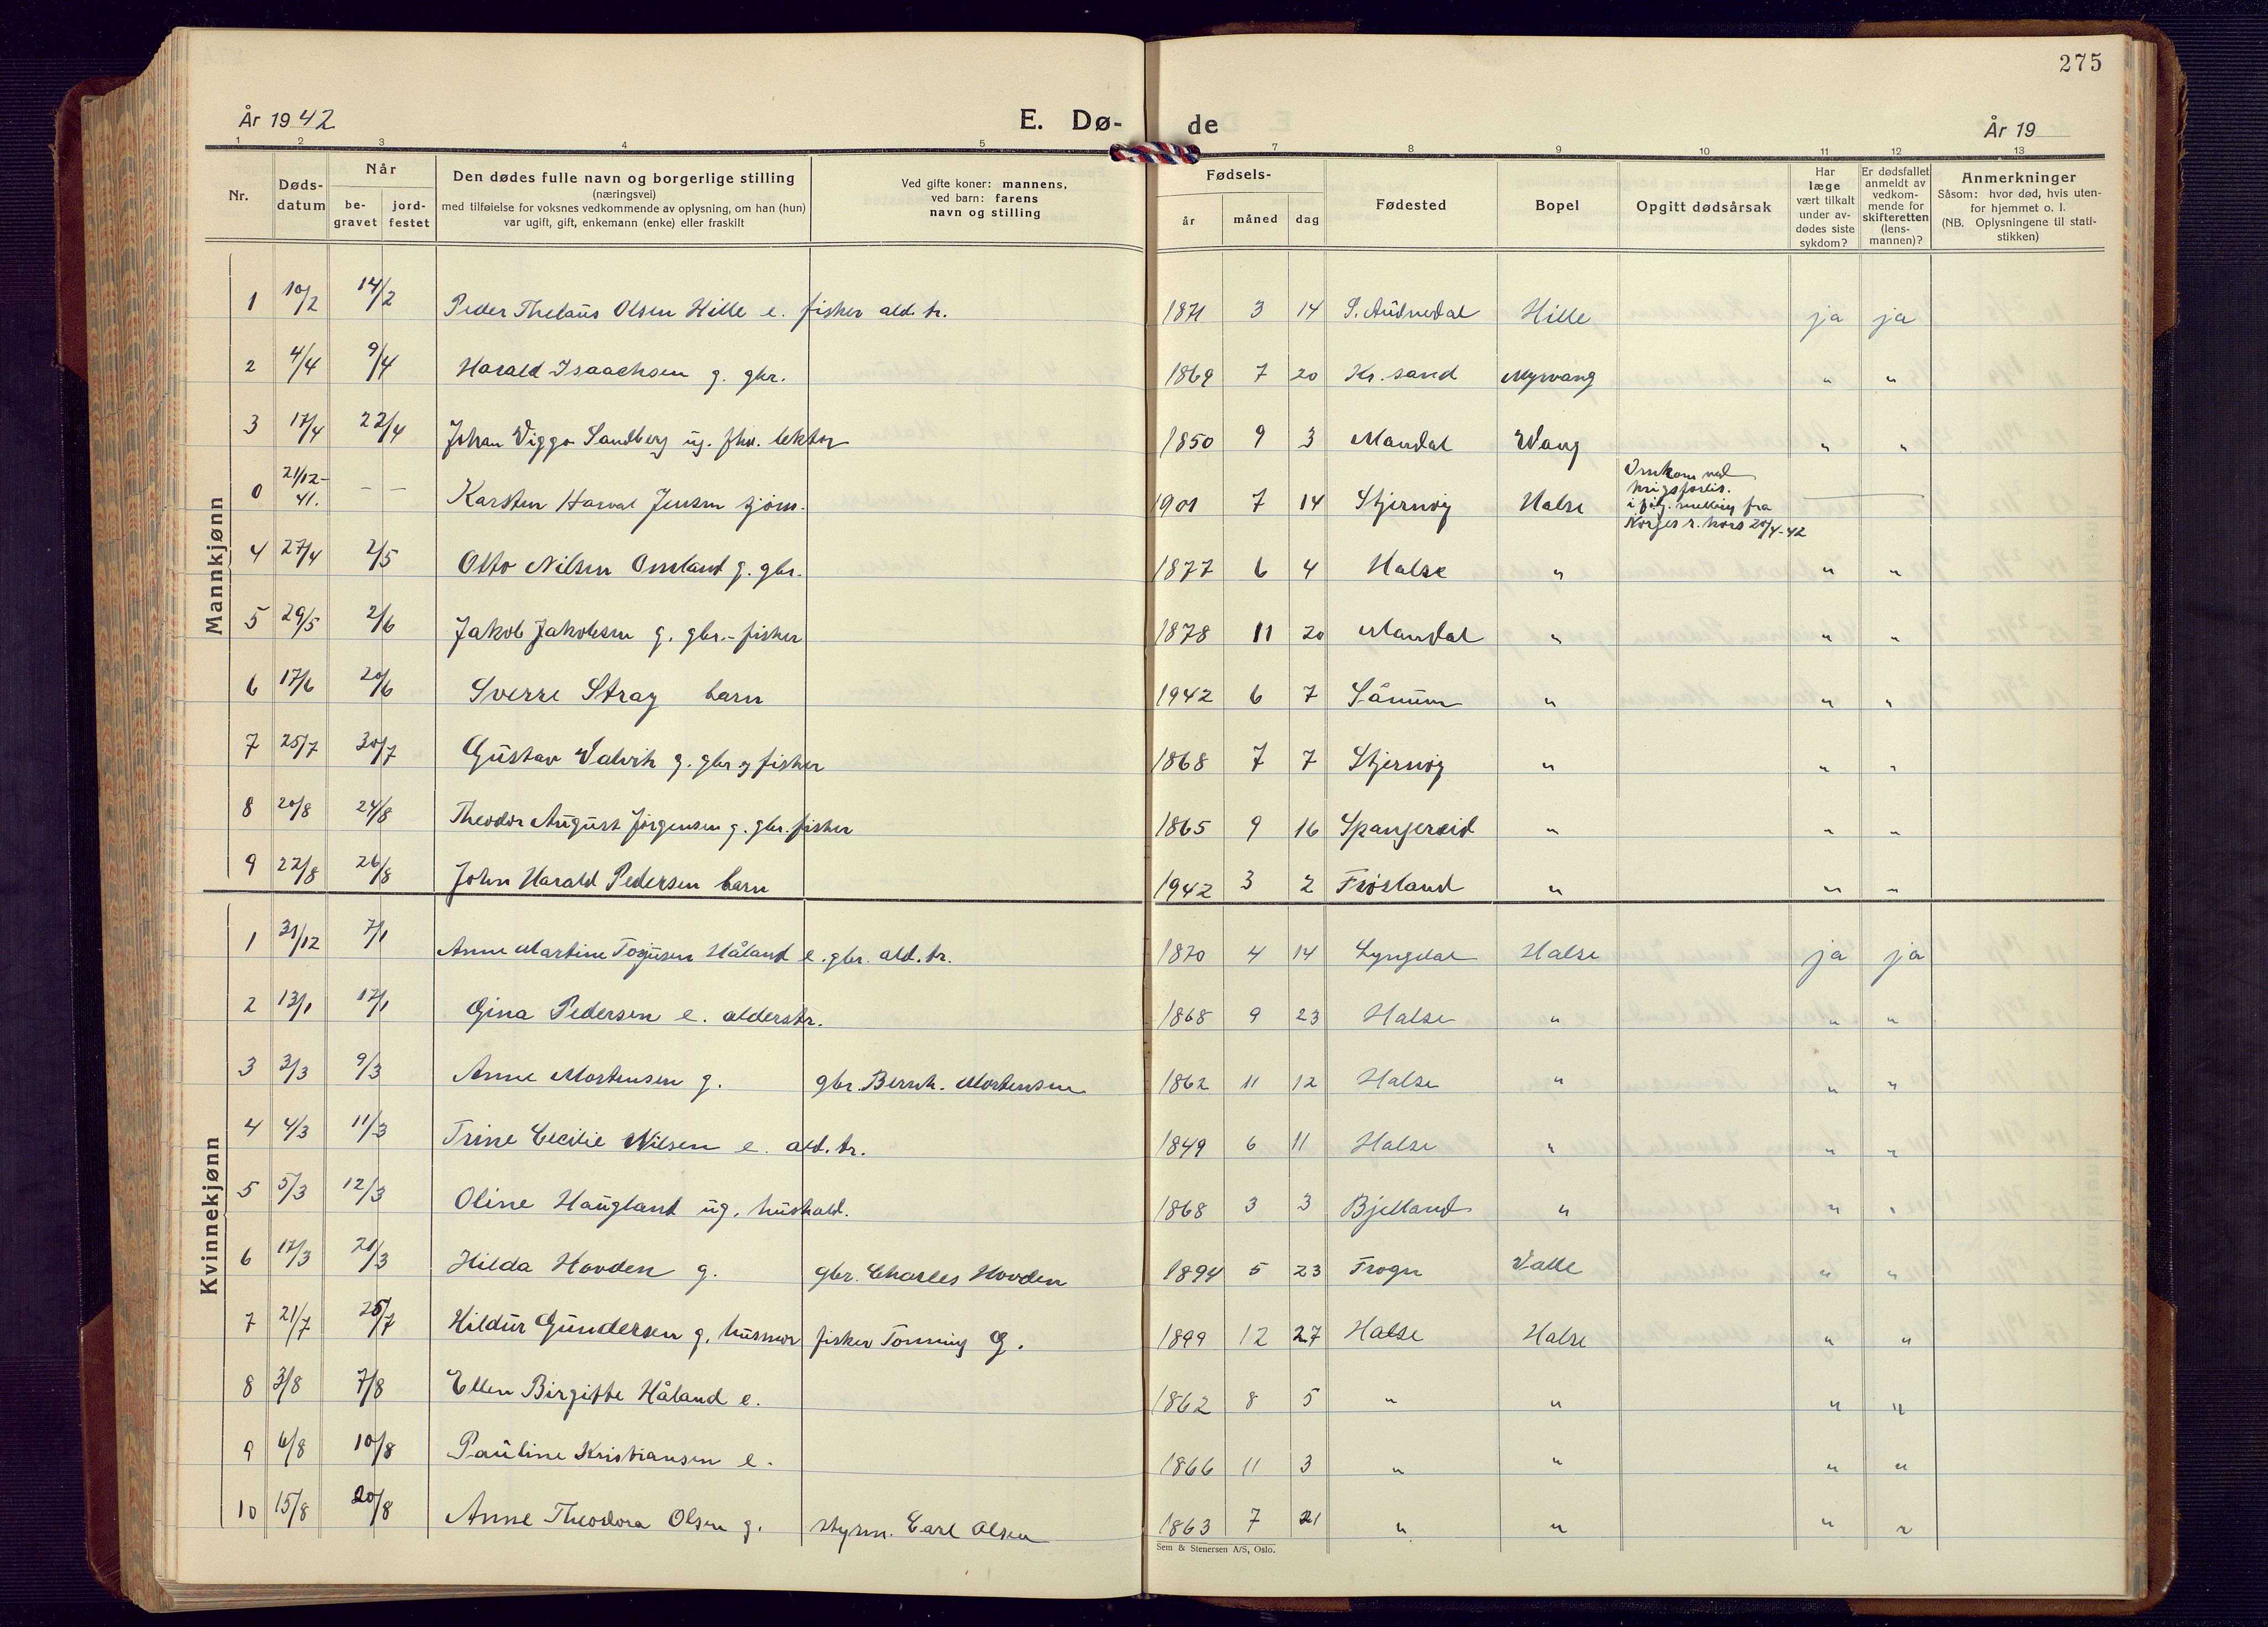 275
År 1942 E. Dø- de År 19
1 2 3 4 5 7 8 9 10 11 12 13
Nr. Døds-datum Når be-gravet jord-festet Den dødes fulle navn og borgerlige stilling (næringsvei) med tilføielse for voksnes vedkommende av oplysning, om han (hun) var ugift, gift, enkemann (enke) eller fraskilt Ved gifte koner: mannens, ved barn: farens navn og stilling Fødsels- år måned dag Fødested Bopel Opgitt dødsårsak Har læge vært tilkalt under av-dødes siste sykdom? Er dødsfallet anmeldt av vedkom-mende for skifteretten (lens-mannen)? Anmerkninger Såsom: hvor død, hvis uten-for hjemmet o. l. (NB. Oplysningene til stati-stikken)
Mannkjønn
1 10/2 14/2 Peder Thelaus Olsen Hille e. fisker ald. tr. 1871 3 14 S. Audnedal Hille ja ja
2 4/4 9/4 Harald Isaachsen g. gbr. 1869 7 20 Kr. sand Myrvang " "
3 17/4 22/4 Johan Viggo Sandberg ug. fhv. lektor 1850 9 3 Mandal Vang " "
0 21/12-41. – – Karsten Harval Jensen sjøm. 1901 7 14 Skjernøy Halse Omkom ved krigsforlis. i følg. melding fra Norges r. kors 20/4-42
4 27/4 2/5 Otto Nilsen Omland g. gbr. 1877 6 4 Halse " " "
5 29/5 2/6 Jakob Jakobsen g. gbr.-fisker 1878 11 20 Mandal " " "
6 17/6 20/6 Sverre Stray barn 1942 6 7 Sånum " " "
7 25/7 30/7 Gustav Valvik g. gbr og fisker 1868 7 7 Skjernøy " " "
8 20/8 24/8 Theodor August Jørgensen g. gbr. fisker 1865 9 16 Spangereid " " "
9 22/8 26/8 John Harald Pedersen barn 1942 3 2 Frøsland " " "
Kvinnekjønn
1 31/12 7/1 Anne Martine Togusen Håland e. gbr. ald. tr. 1870 4 14 Lyngdal Halse ja ja
2 13/1 17/1 Gina Pedersen e. alderstr. 1868 9 23 Halse " " "
3 3/3 9/3 Anne Mortensen g. gbr. Bernh. Mortensen 1862 11 12 Halse " " "
4 4/3 11/3 Trine Cecilie Nilsen e. ald. tr. 1849 6 11 Halse " " "
5 5/3 12/3 Oline Haugland ug. hushold. 1868 3 3 Bjelland " " "
6 17/3 21/3 Hilda Hovden g. gbr. Charles Hovden 1894 5 23 Frogn Valle " "
7 21/7 25/7 Hildur Gundersen g. husmor fisker Tonning G. 1899 12 27 Halse Halse " "
8 3/8 7/8 Ellen Birgitte Håland e. 1862 8 5 " " " "
9 6/8 10/8 Pauline Kristiansen e. 1866 11 3 " " " "
10 15/8 20/8 Anne Theodora Olsen g. styrm. Carl Olsen 1863 7 21 " " " "
Sem & Stenersen A/S, Oslo.